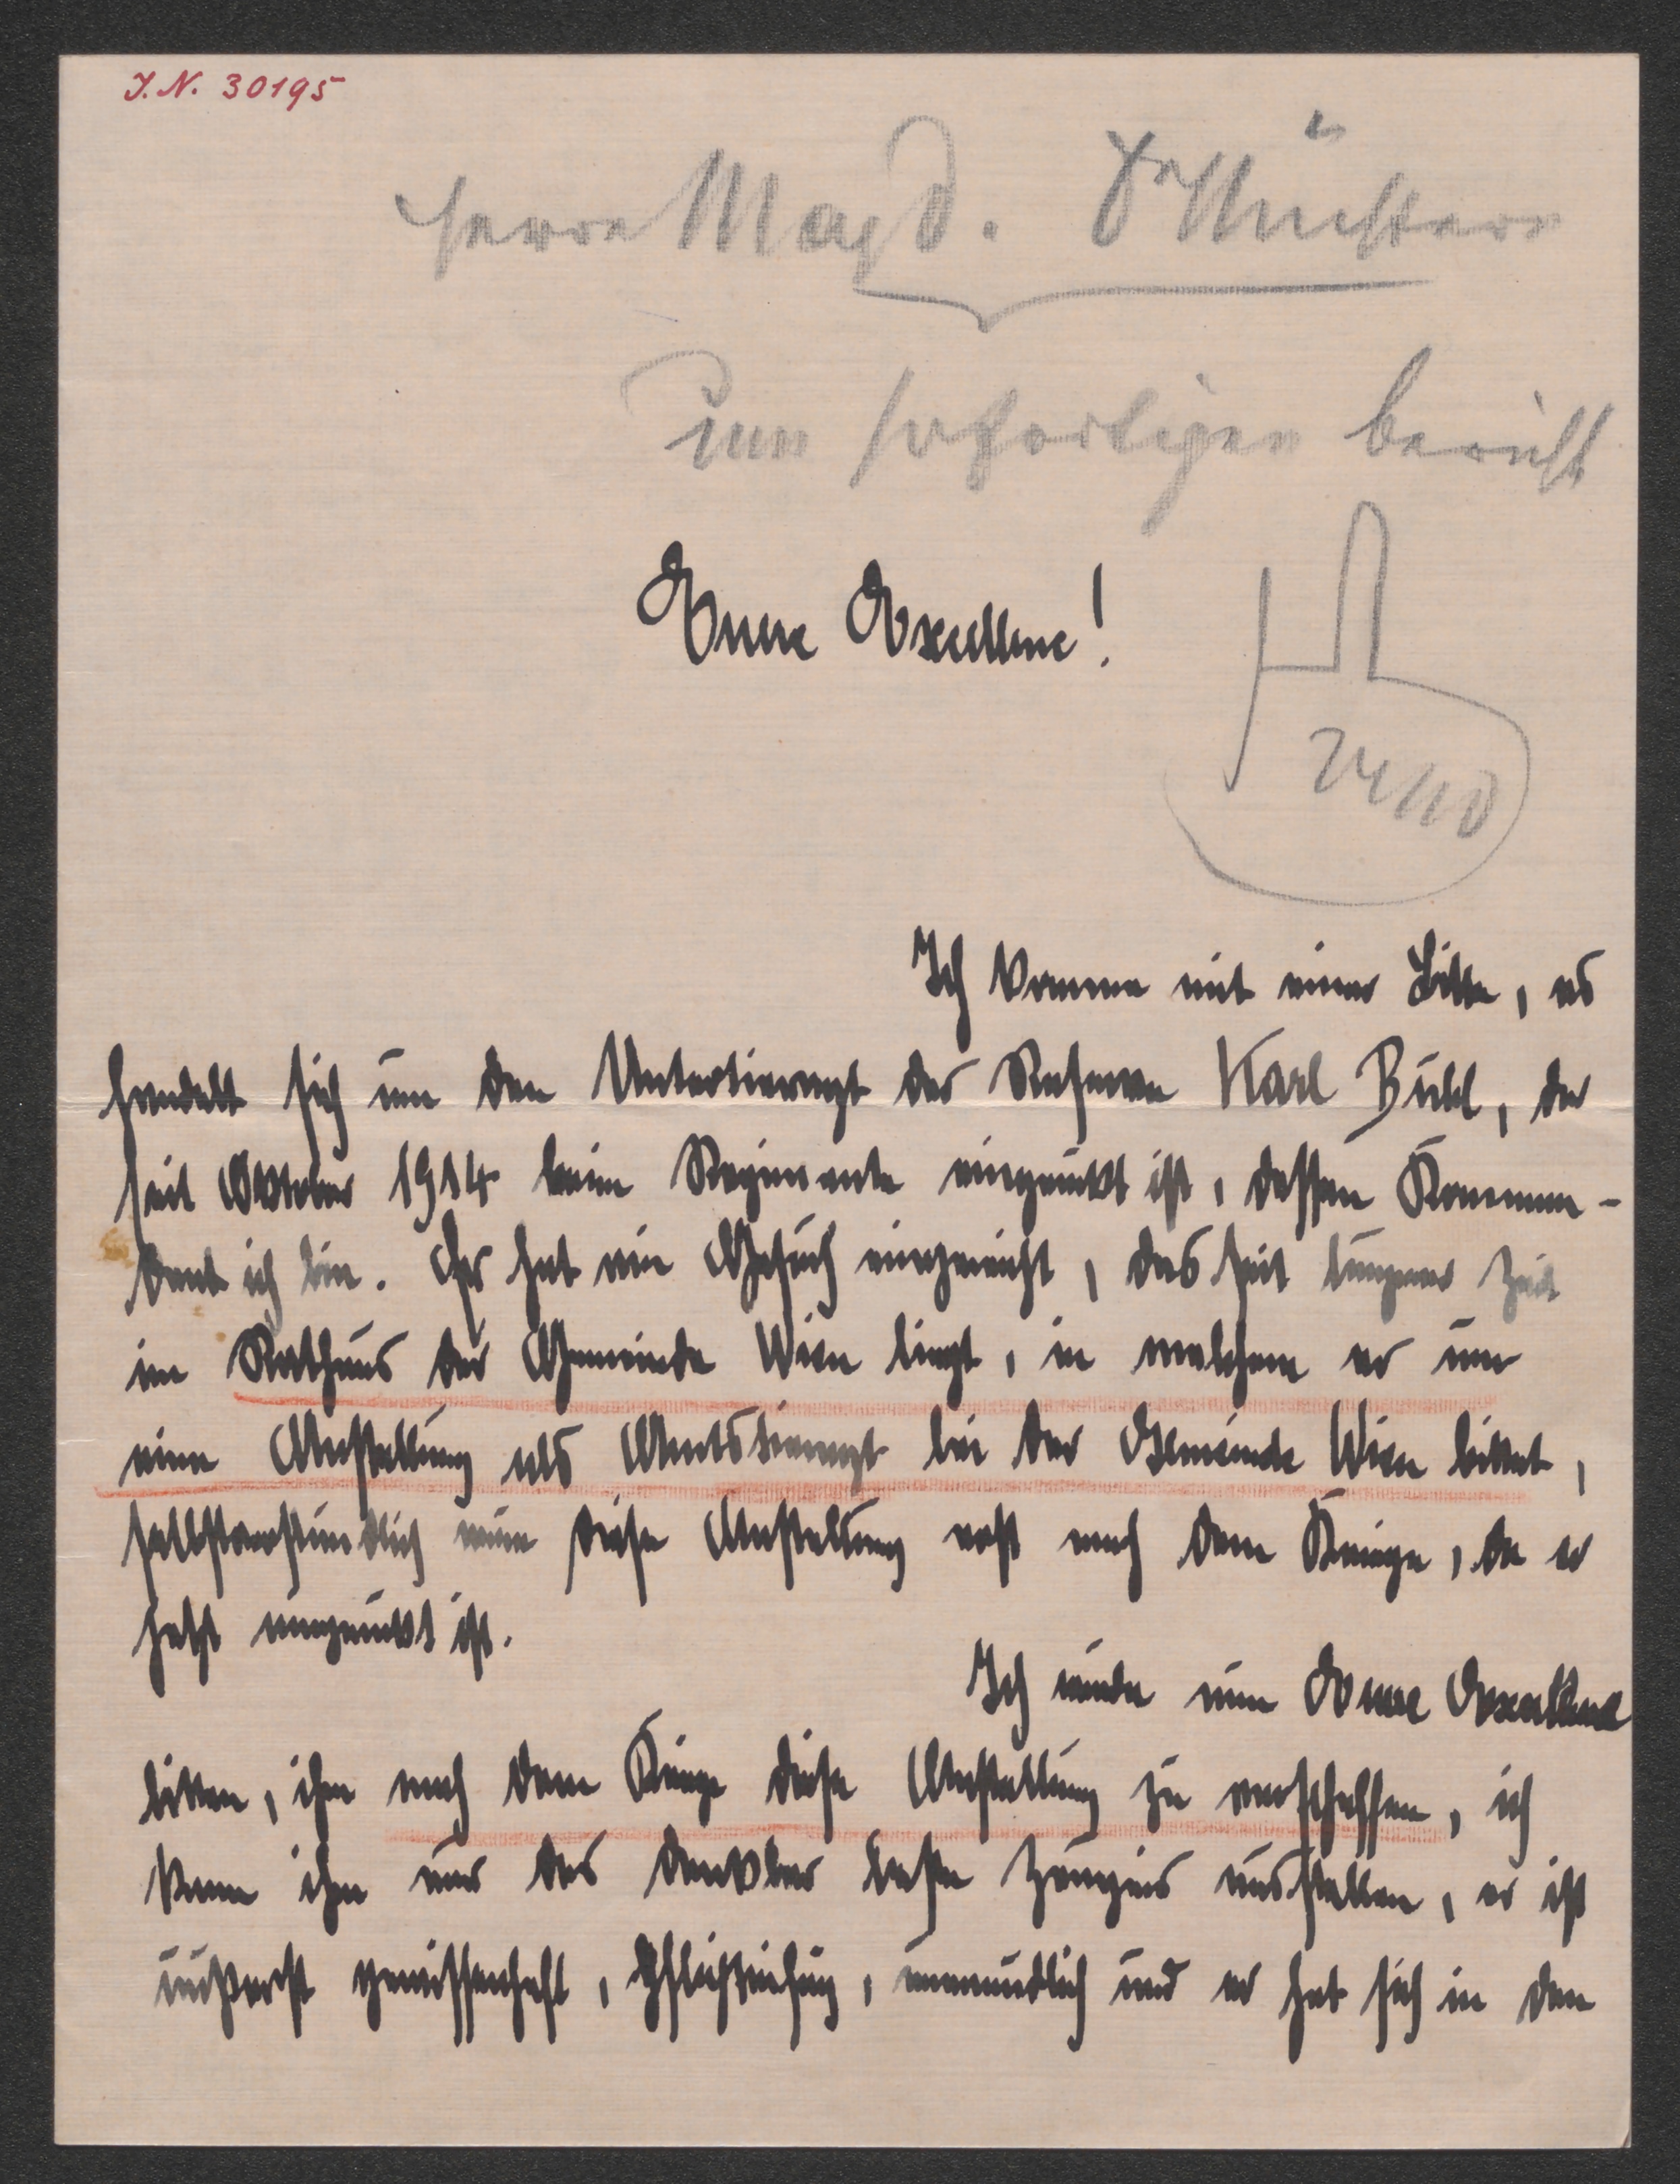 J.N. 30195
Herrn Mag D.
um sofortigen bericht
Euere Excellenz!
Ich komme mit einer Bitte, es
handelt sich um den Untertierarzt der Reserve Karl Buhl, der
seit Oktober 1914 beim Regimente eingerückt ist, dessen Komman-
dant ich bin. Er hat ein Gesuch eingereicht, das seit langer Zeit
im Rathaus der Gemeinde Wien liegt, in welchem er um
eine Anstellung als Amtstierarzt bei der Gemeinde Wien bittet,
selbstverständlich wäre diese Anstellung erst nach dem Kriege, da er
jetzt eingerückt ist.
Ich würde nun Euere Excellenz
bitten, ihm nach dem Kriege diese Anstellung zu verschaffen, ich
kann ihm nur das denkbar beste Zeugnis ausstellen, er ist
äußerst gewissenhaft, pflichteifrig, unermüdlich und er hat sich in den